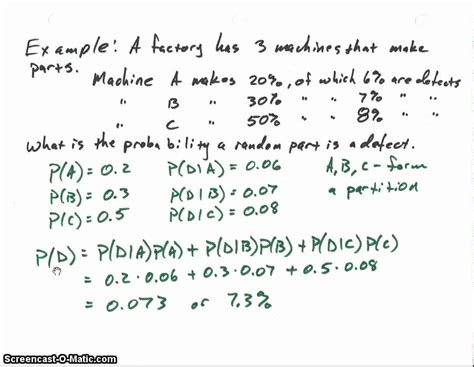 Example: A factory has 3 machines that make
parts.
Machine A makes 20%, of which 6% are defects
" B " 30% " 7% " "
" C " 50% " 8% " "
What is the probability a random part is a defect.
P(A) = 0.2 P(D|A) = 0.06 A, B, C - form
P(B) = 0.3 P(D|B) = 0.07 a partition
P(C) = 0.5 P(D|C) = 0.08
P(D) = P(D|A)P(A) + P(D|B)P(B) + P(D|C)P(C)
= 0.2 · 0.06 + 0.3 · 0.07 + 0.5 · 0.08
= 0.073 or 7.3%
Screencast-O-Matic.com